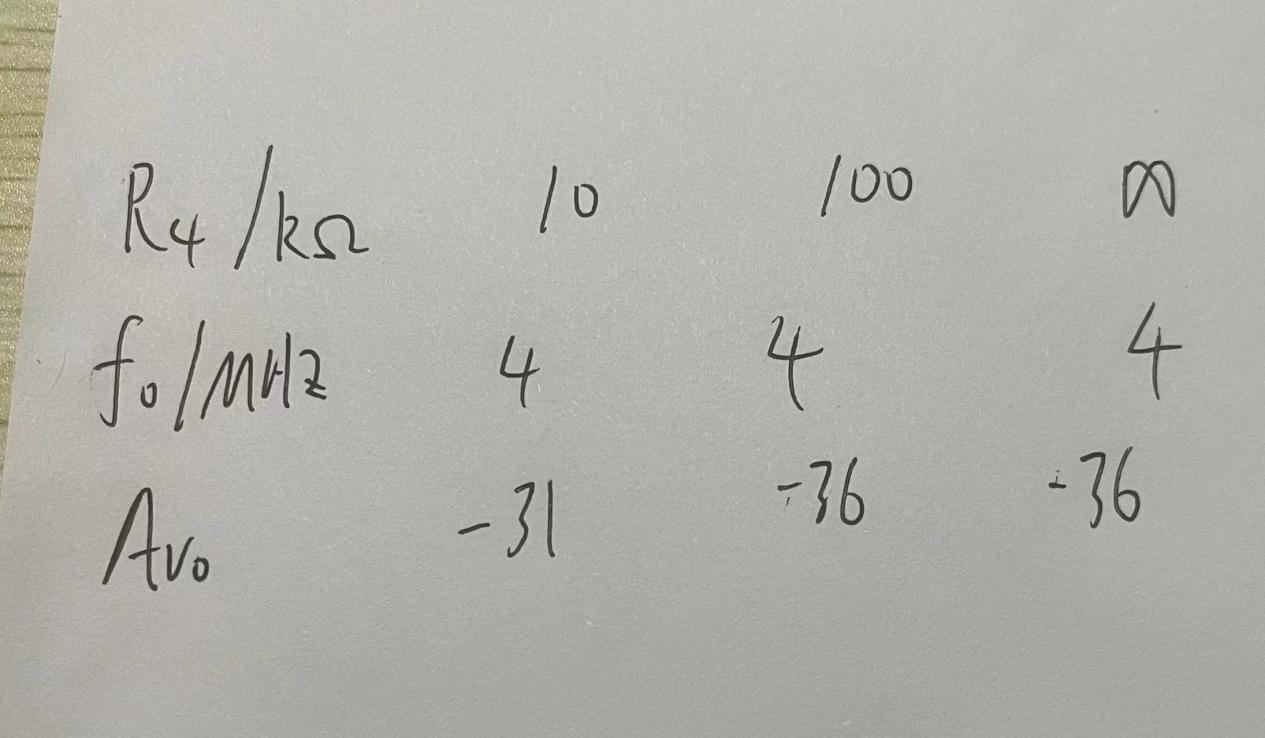 R4/kΩ 10 100 ∞
f0/MHz 4 4 4
Av0 -31 -36 -36